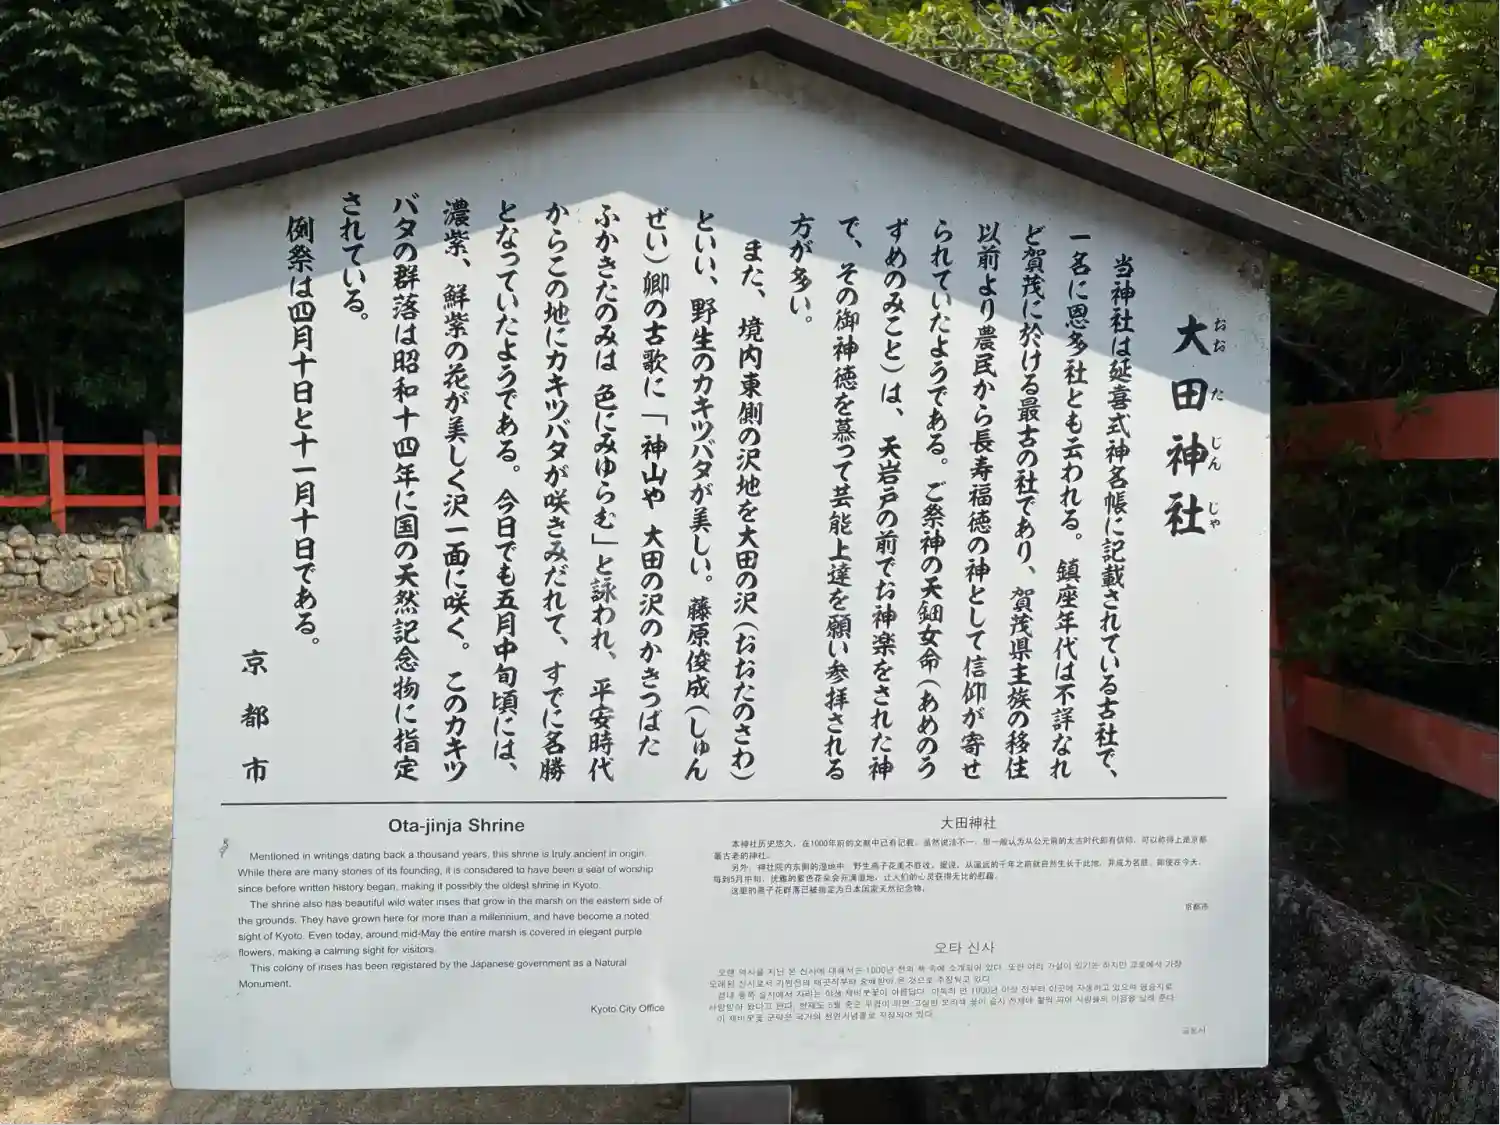 大田神社
おおたじんじゃ
当神社は延喜式神名帳に記載されている古社で、
一名に恩多社とも云われる。鎮座年代は不詳なれ
ど賀茂に於ける最古の社であり、賀茂県主族の移住
以前より農民から長寿福徳の神として信仰が寄せ
られていたようである。ご祭神の天鈿女命(あめのう
ずめのみこと)は、天岩戸の前でお神楽をされた神
で、その御神徳を慕って芸能上達を願い参拝される
方が多い。
また、境内東側の沢地を大田の沢(おおたのさわ)
といい、野生のカキツバタが美しい。藤原俊成(しゅん
ぜい)卿の古歌に「神山や 大田の沢のかきつばた
ふかきたのみは 色にみゆらむ」と詠われ、平安時代
からこの地にカキツバタが咲きみだれて、すでに名勝
となっていたようである。今日でも五月中旬頃には、
濃紫、鮮紫の花が美しく沢一面に咲く。このカキツ
バタの群落は昭和十四年に国の天然記念物に指定
されている。
例祭は四月十日と十一月十日である。
京都市
Ota-jinja Shrine
Mentioned in writings dating back a thousand years, this shrine is truly ancient in origin.
While there are many stories of its founding, it is considered to have been a seat of worship
since before written history began, making it possibly the oldest shrine in Kyoto.
The shrine also has beautiful wild water irises that grow in the marsh on the eastern side of
the grounds. They have grown here for more than a millennium, and have become a noted
sight of Kyoto. Even today, around mid-May the entire marsh is covered in elegant purple
flowers, making a calming sight for visitors.
This colony of irises has been registered by the Japanese government as a Natural
Monument.
Kyoto City Office
大田神社
本神社历史悠久，在1000年前的文献中已有记载。虽然说法不一，但一般认为从公元前的太古时代即有信仰，可以称得上是京都
最古老的神社。
另外，神社院内东侧的湿地中，野生燕子花美不胜收。据说，从遥远的千年之前就自然生长于此地，并成为名胜。即使在今天，
每到5月中旬，优雅的紫色花朵会开满湿地，让人们的心灵获得无比的慰藉。
这里的燕子花群落已被指定为日本国家天然纪念物。
京都市
오타 신사
오랜 역사를 지닌 본 신사에 대해서는 1000년 전의 책 속에 소개되어 있다. 또한 여러 가설이 있기는 하지만 교토에서 가장
오래된 신사로서 기원전의 태곳적부터 숭배받아 온 것으로 추정되고 있다.